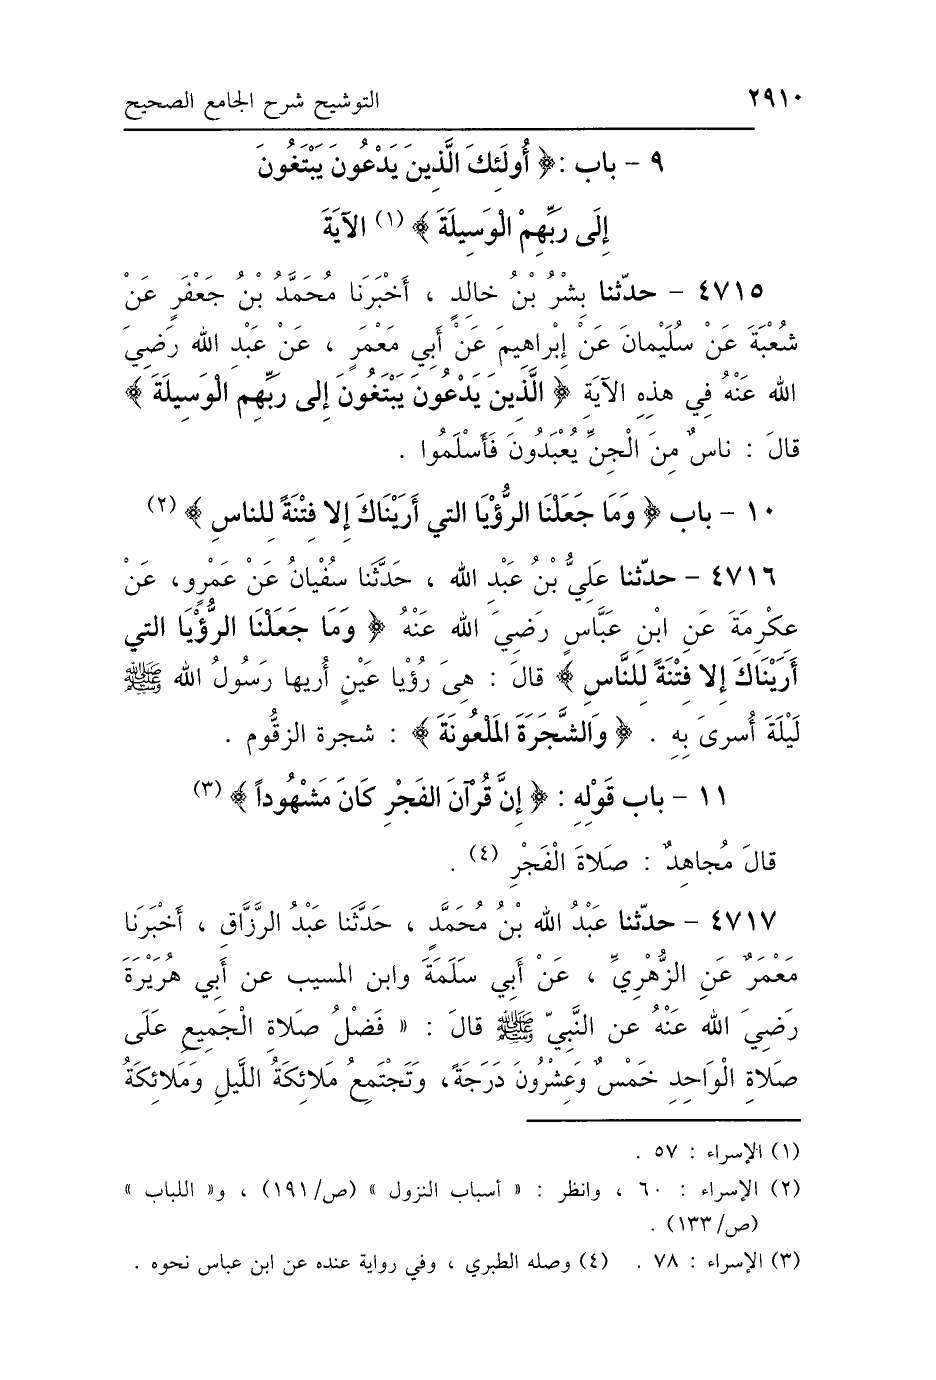 ٢٩١٠ التوشيح شرح الجامع الصحيح
٩ – باب : ﴿ أُولَئِكَ الَّذِينَ يَدْعُونَ يَبْتَغُونَ
إِلَى رَبِّهِمْ الْوَسِيلَةَ ﴾ (١) الآيَةَ
٤٧١٥ – حدّثنا بِشْرُ بْنُ خالِدٍ ، أَخْبَرَنَا مُحَمَّدُ بْنُ جَعْفَرٍ عَنْ
شُعْبَةَ عَنْ سُلَيْمانَ عَنْ إِبْراهِيمَ عَنْ أَبِي مَعْمَرٍ ، عَنْ عَبْدِ الله رَضِيَ
الله عَنْهُ فِي هذِهِ الآيَةِ ﴿ الَّذِينَ يَدْعُونَ يَبْتَغُونَ إلى رَبِّهِم الْوَسِيلَةَ ﴾
قالَ : ناسٌ مِنَ الْجِنِّ يُعْبَدُونَ فَأَسْلَمُوا .
١٠ – باب ﴿ وَمَا جَعَلْنَا الرُّؤْيَا التي أَرَيْنَاكَ إِلا فِتْنَةً للناسِ ﴾ (٢)
٤٧١٦ – حدّثنا عَلِيُّ بْنُ عَبْدِ الله ، حَدَّثَنا سُفْيانُ عَنْ عَمْرٍو، عَنْ
عِكْرِمَةَ عَنِ ابْنِ عَبَّاسٍ رَضِيَ الله عَنْهُ ﴿ وَمَا جَعَلْنَا الرُّؤْيَا التي
أَرَيْنَاكَ إِلا فِتْنَةً لِلنَّاسِ ﴾ قالَ : هِيَ رُؤْيا عَيْنٍ أُريها رَسُولُ الله ﷺ
لَيْلَةَ أُسرىَ بِهِ . ﴿ وَالشَّجَرَةَ المَلْعُونَةَ ﴾ : شجرة الزقُّوم .
١١ – باب قَوْلِهِ : ﴿ إِنَّ قُرْآنَ الفَجْرِ كَانَ مَشْهُوداً ﴾ (٣)
قالَ مُجاهِدٌ : صَلاةَ الْفَجْرِ (٤) .
٤٧١٧ – حدّثنا عَبْدُ الله بْنُ مُحَمَّدٍ ، حَدَّثَنا عَبْدُ الرَّزَّاقِ ، أَخْبَرَنا
مَعْمَرٌ عَنِ الزُّهْرِيِّ ، عَنْ أَبِي سَلَمَةَ وابن المسيب عن أَبِي هُرَيْرَةَ
رَضِيَ الله عَنْهُ عن النَّبِيِّ ﷺ قالَ : « فَضْلُ صَلاةِ الْجَمِيعِ عَلَى
صَلاةِ الْوَاحِدِ خَمْسٌ وَعِشْرُونَ دَرَجَةً، وَتَجْتَمِعُ مَلائِكَةُ اللَّيلِ وَمَلائِكَةُ
(١) الإسراء : ٥٧ .
(٢) الإسراء : ٦٠ ، وانظر : « أسباب النزول » (ص/١٩١) ، و« اللباب »
(ص/١٣٣) .
(٣) الإسراء : ٧٨ . (٤) وصله الطبري ، وفي رواية عنده عن ابن عباس نحوه .